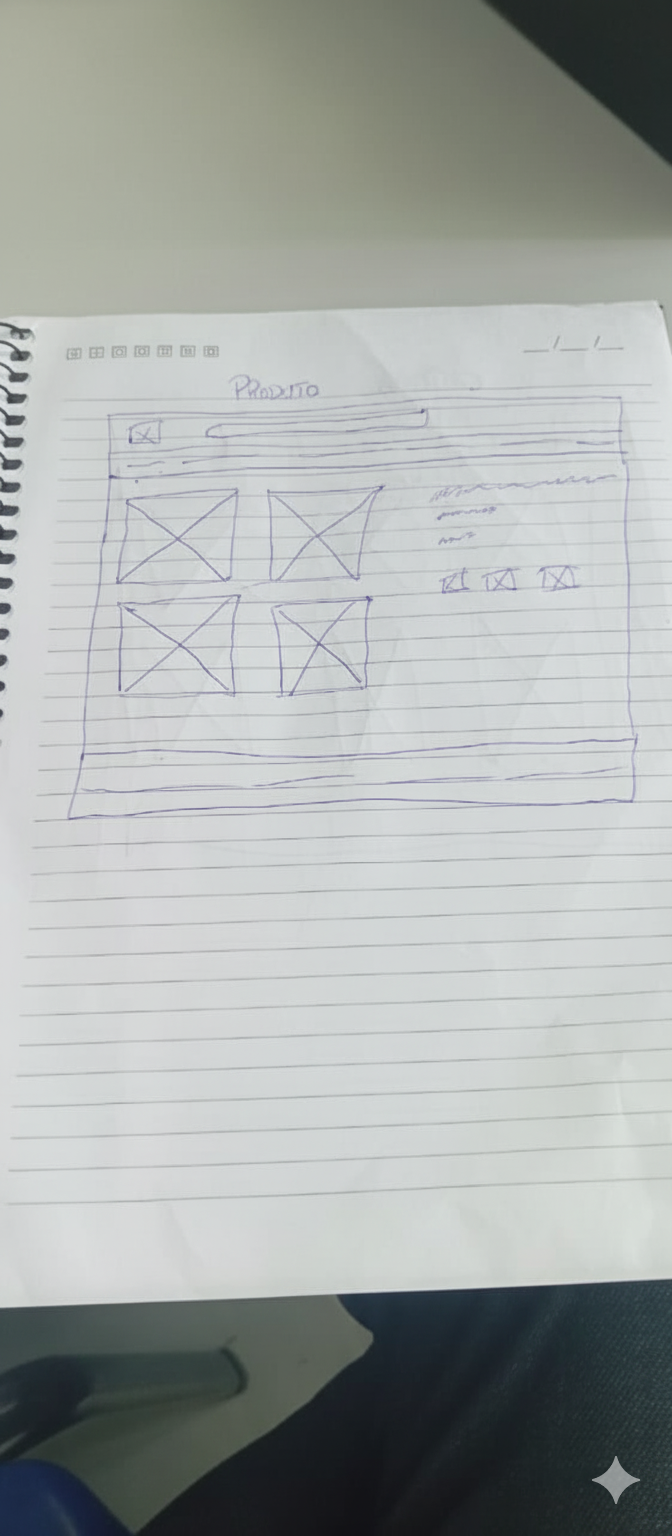 PRODUTO
__/__/__